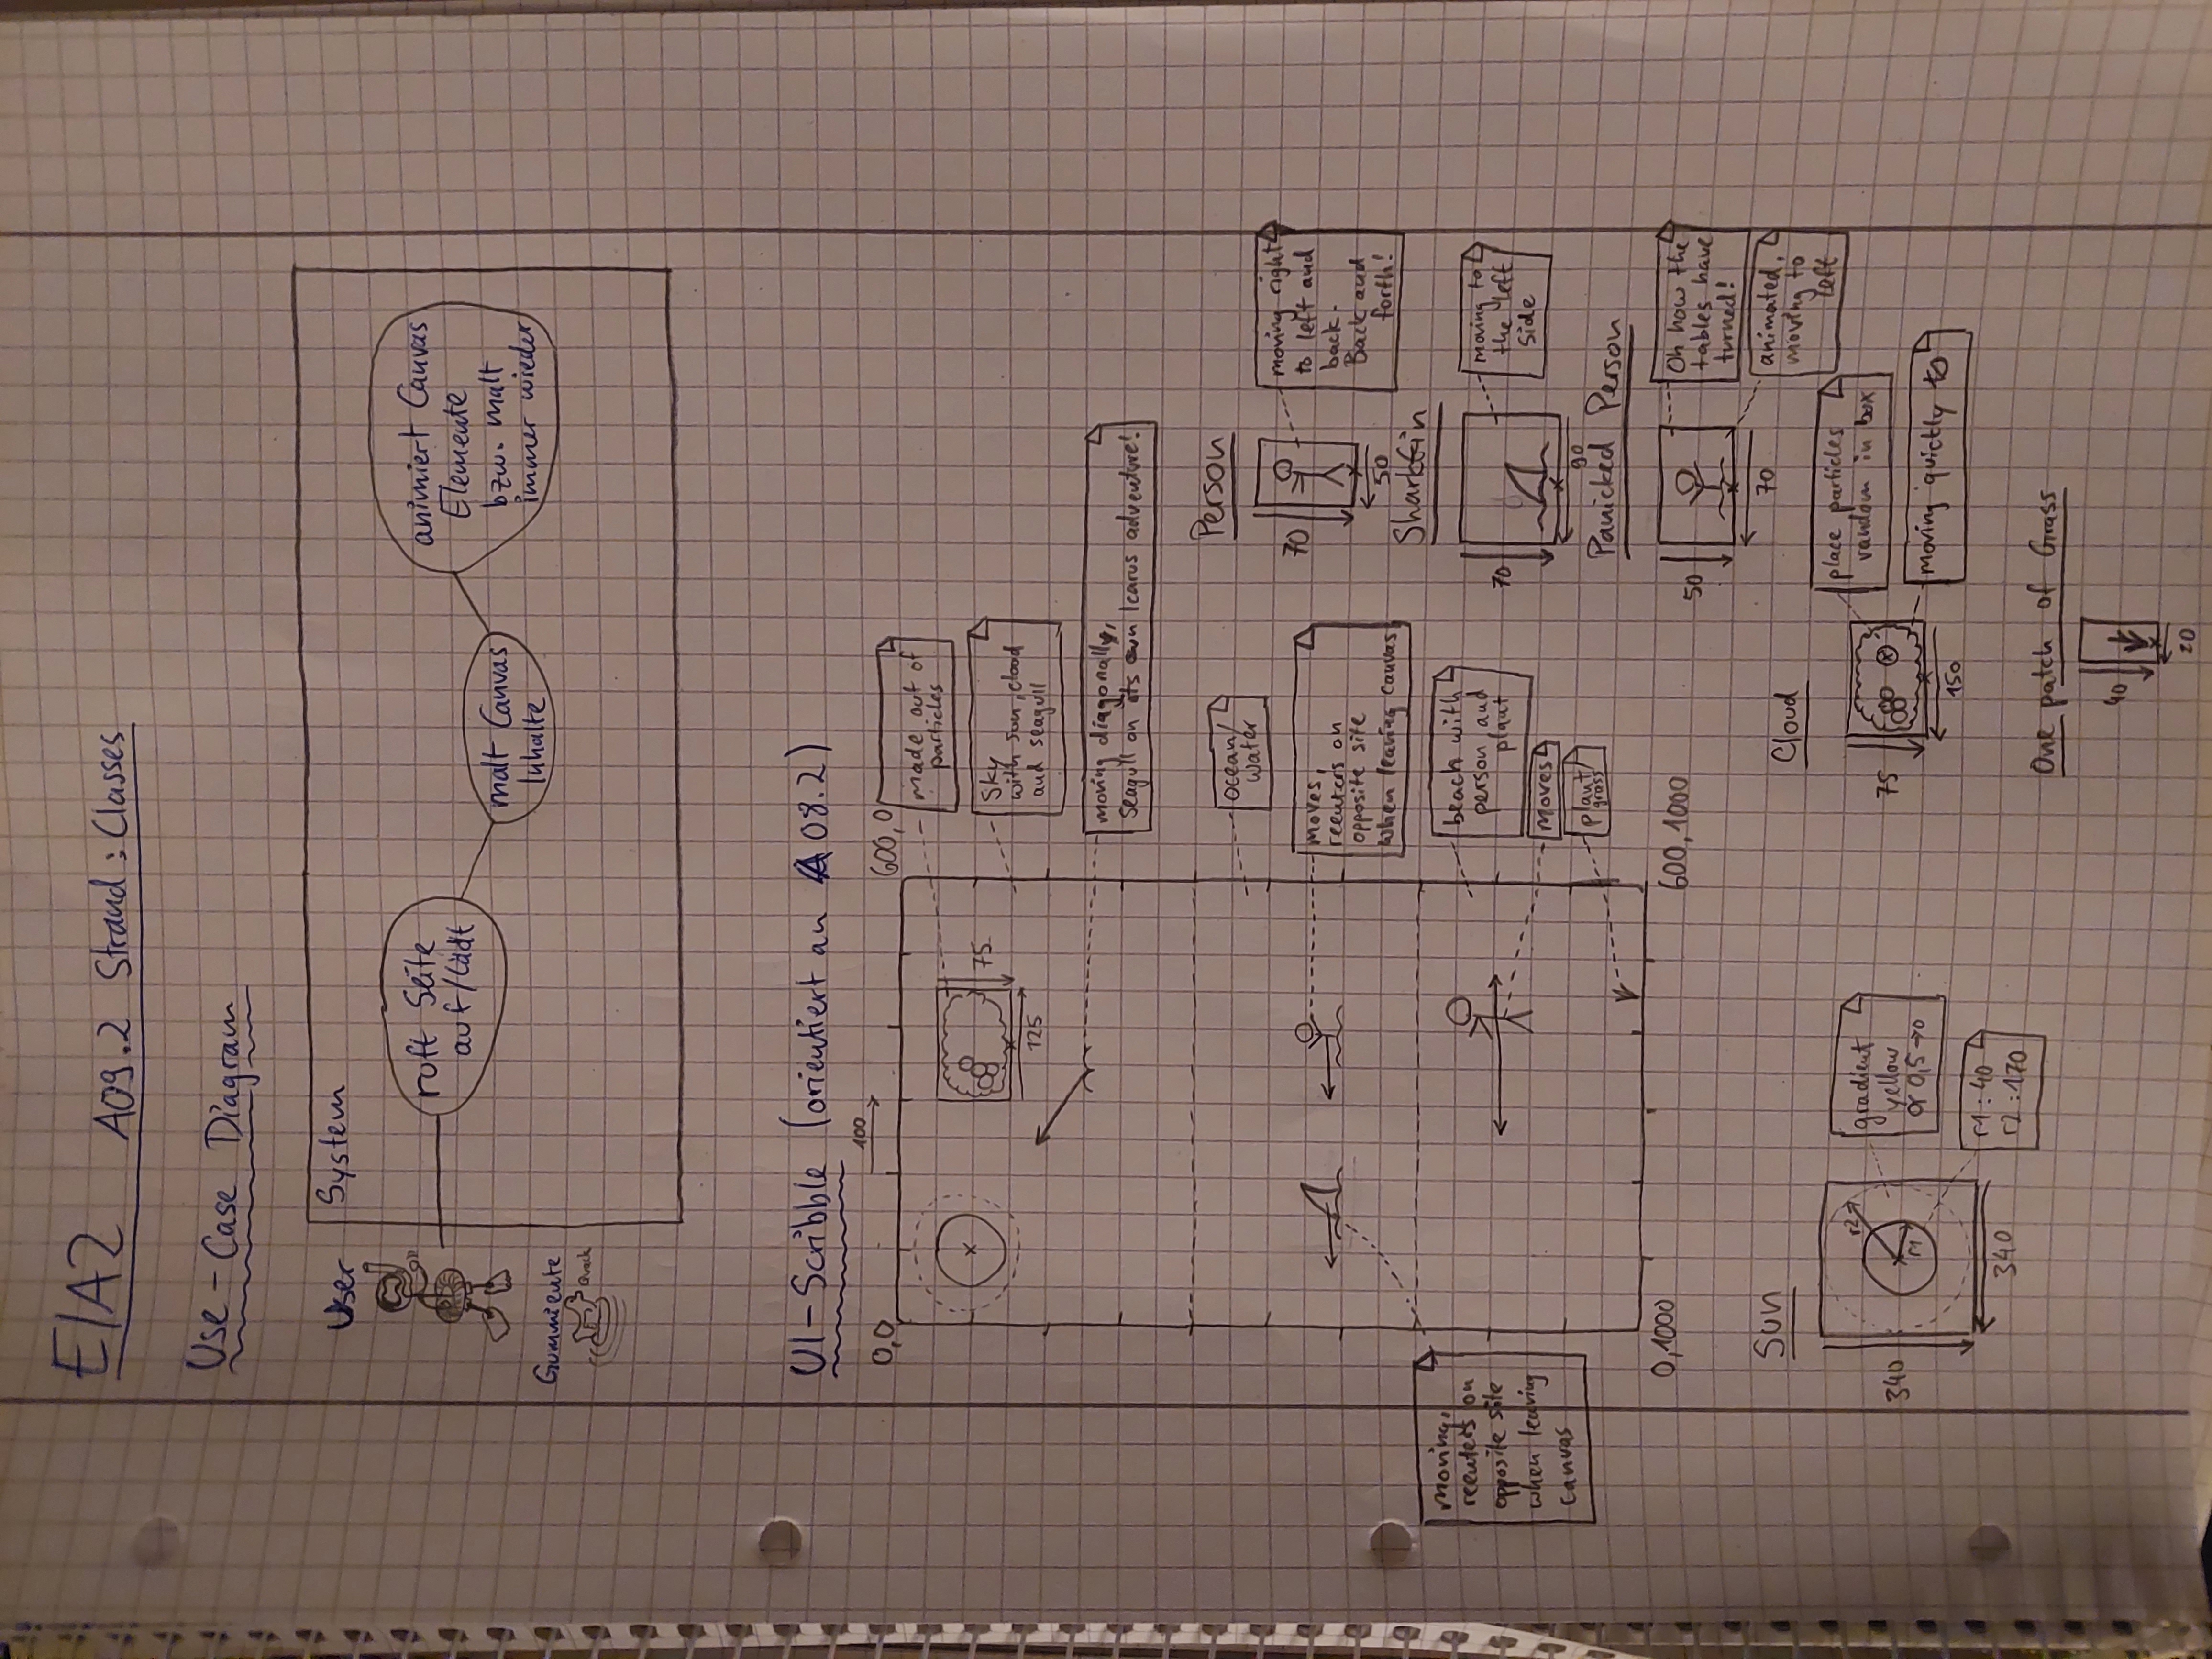 EIA2 A09.2 Strand: Classes
Use-Case Diagram
User
System
ruft Seite
auf/lädt
malt Canvas
Inhalte
animiert Canvas
Elemente
bzw. malt
immer wieder
Gummiente
Quack
UI-Scribble (orientiert an A08.2)
100
0,0
600,0
made out of
particles
75
125
Sky
with sun, cloud
and seagull
moving diagonally,
Seagull on its own Icarus adventure!
ocean/
water
moves,
reenters on
opposite site
when leaving canvas
moving,
reenters on
opposite site
when leaving
canvas
beach with
person and
plant
moves
plant/
grass
0,1000
600,1000
Person
70
50
moving right
to left and
back.
Back and
forth!
Sharkfin
70
90
moving to
the left
side
Panicked Person
50
70
Oh how the
tables have
turned!
animated,
moving to
left
Sun
340
340
r2
r1
gradient
yellow
α 0,5→0
r1: 40
r2: 170
Cloud
75
150
place particles
random in box
moving quickly to
One patch of Grass
40
20